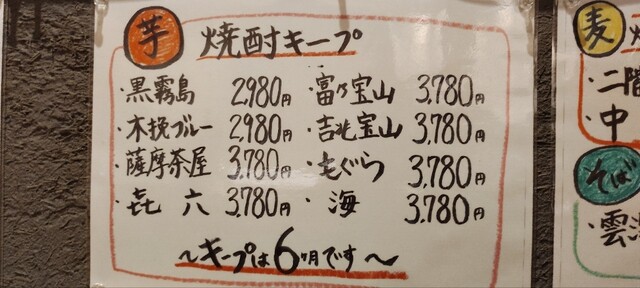 芋 焼酎キープ
・黒霧島 2,980円
・木挽ブルー 2,980円
・薩摩茶屋 3,780円
・㐂六 3,780円
・富乃宝山 3,780円
・吉兆宝山 3,780円
・もぐら 3,780円
・海 3,780円
〜キープは6ヶ月です〜
麦
二階
・中
そば
雲海